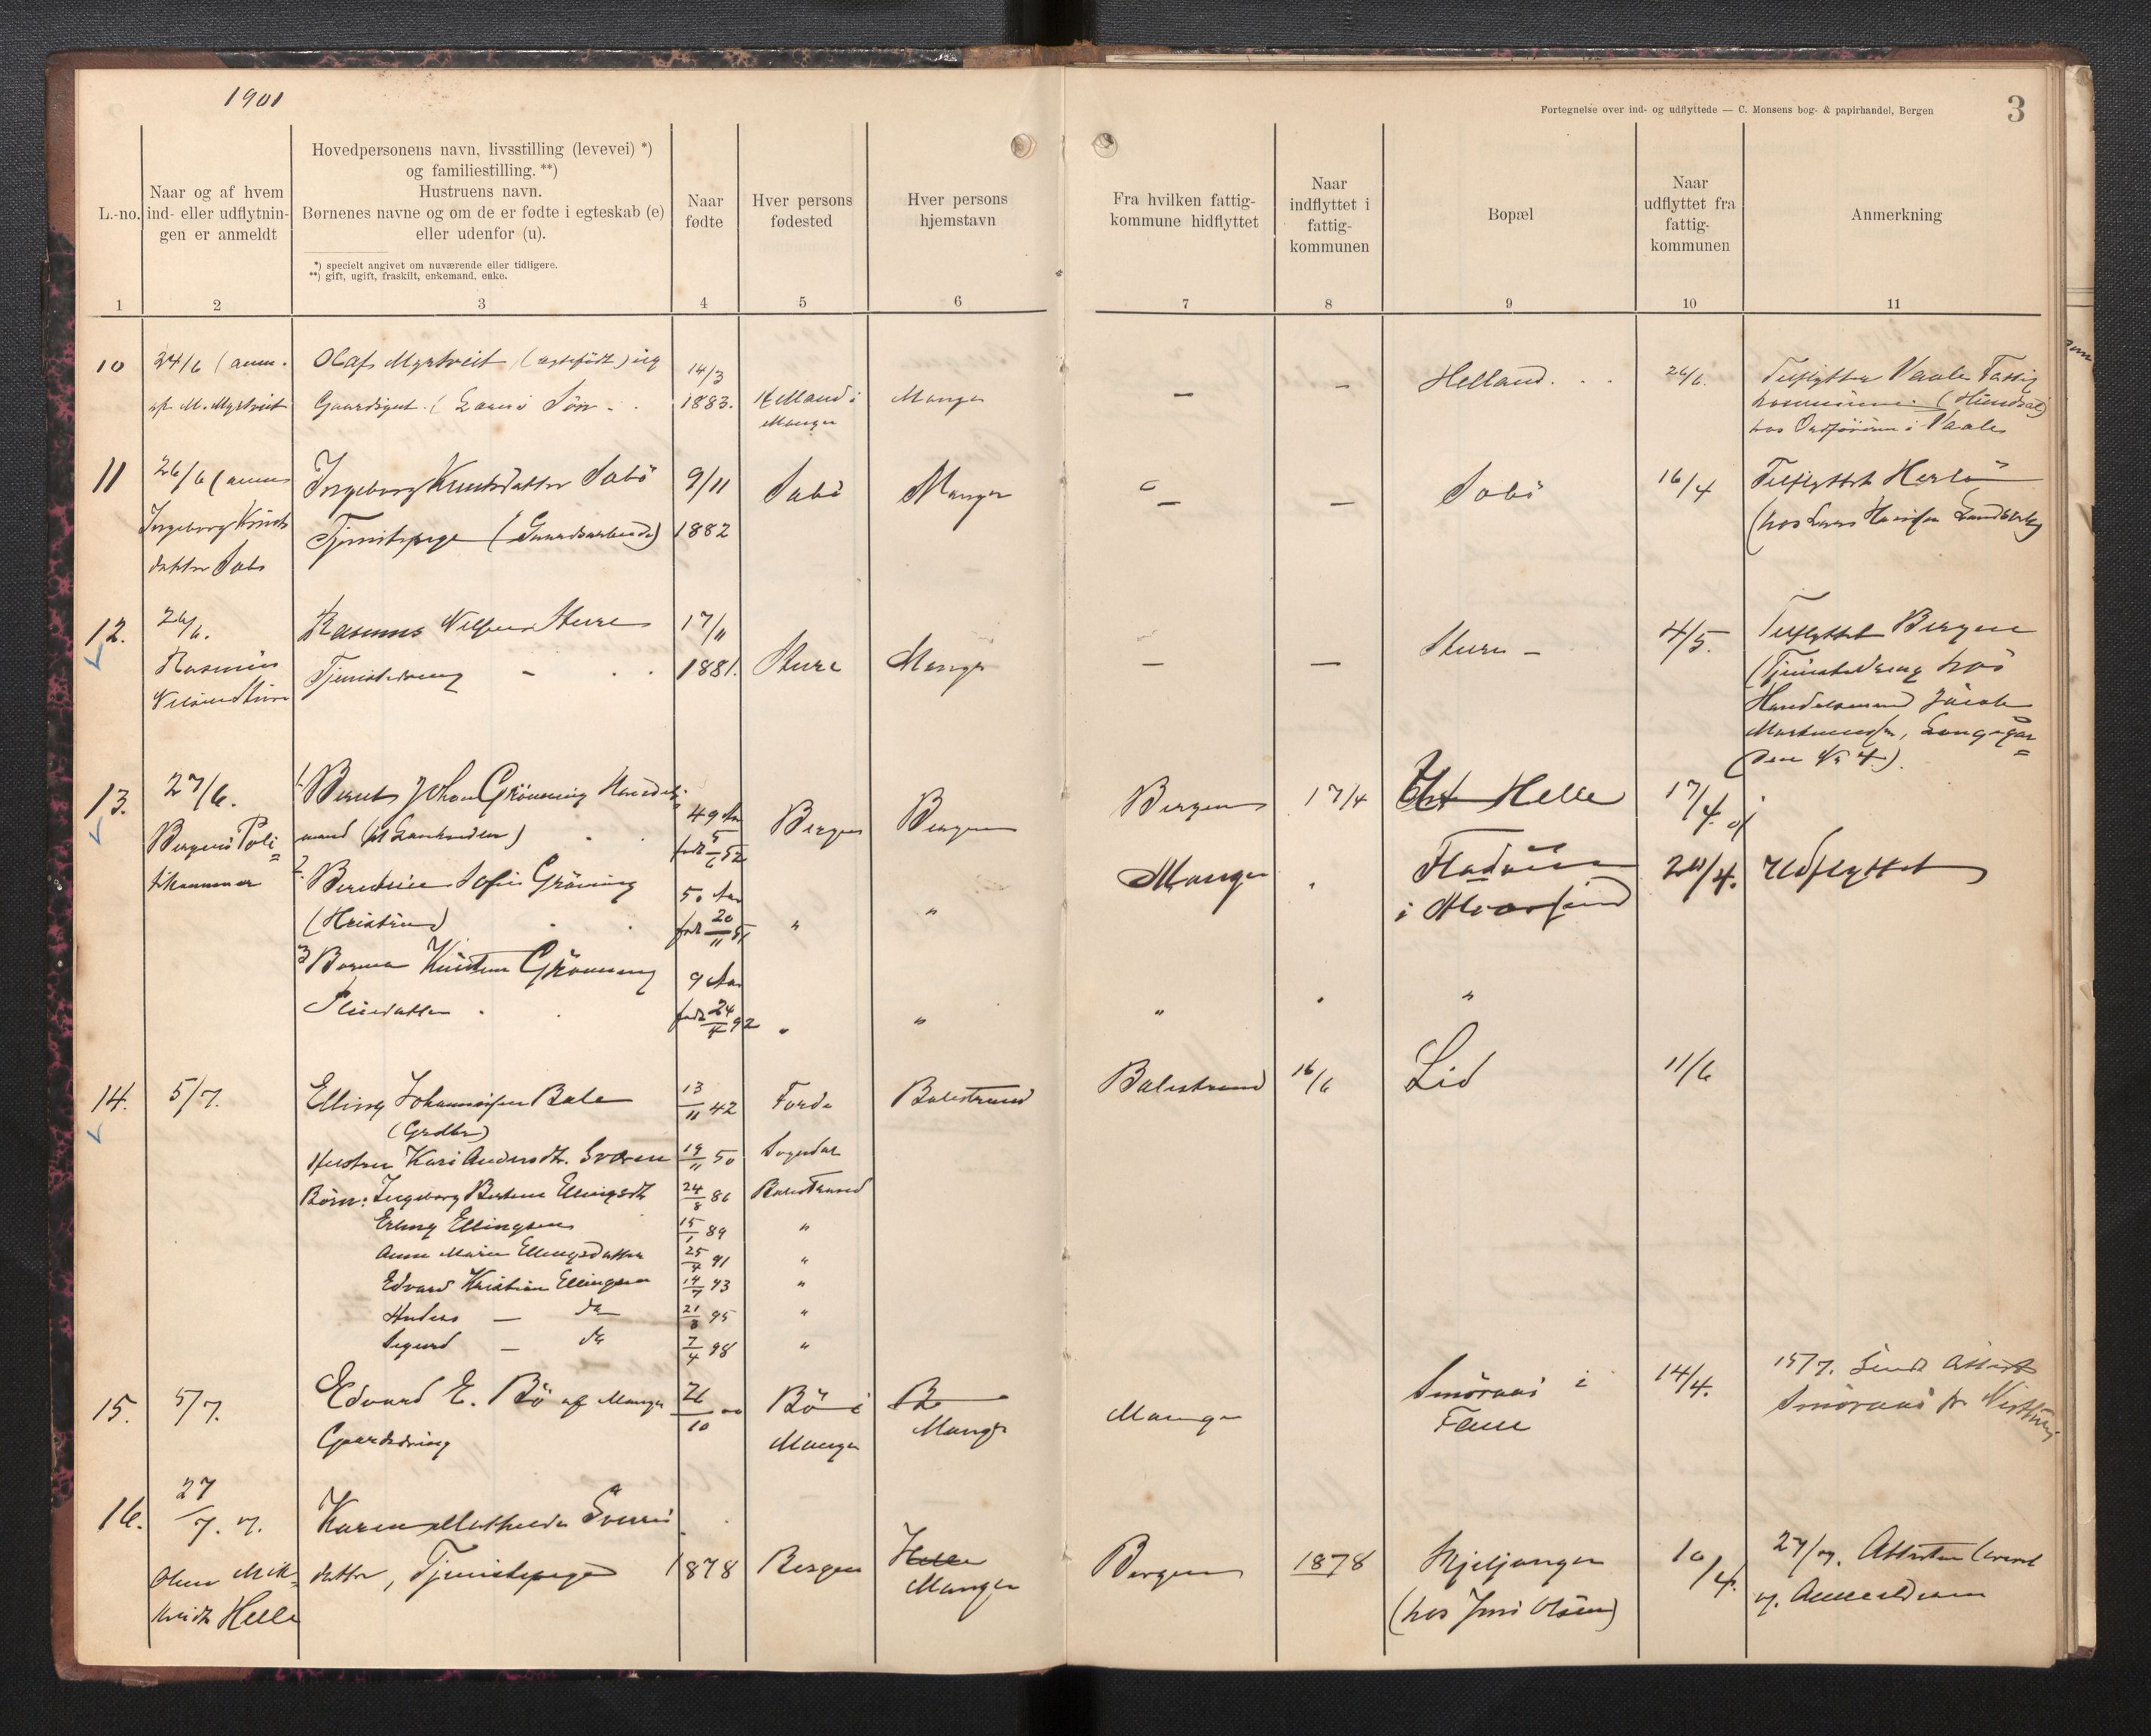 1901
Fortegnelse over ind- og udflyttede — C. Monsens bog- & papirhandel, Bergen
3
L.-no.
Naar og af hvem
ind- eller udflytnin-
gen er anmeldt
Hovedpersonens navn, livsstilling (levevei) *)
og familiestilling. **)
Hustruens navn.
Børnenes navne og om de er fødte i egteskab (e)
eller udenfor (u).
*) specielt angivet om nuværende eller tidligere.
**) gift, ugift, fraskilt, enkemand, enke.
Naar
fødte
Hver persons
fødested
Hver persons
hjemstavn
Fra hvilken fattig-
kommune hidflyttet
Naar
indflyttet i
fattig-
kommunen
Bopæl
Naar
udflyttet fra
fattig-
kommunen
Anmerkning
1 2 3 4 5 6 7 8 9 10 11
10
24/6 (anm.
af M. Myrtveit
Olaf Myrtveit (egtefödt) ug
Gaardsgut. ( Sön
14/3
1883.
Helland i
Manger
Manger
—
—
Helland.
26/6.
Tilflytter Vaale Fattig
kommune.
hos Ordföreren i Vaale
11
26/6 (anm
Ingeborg Knuts
datter Sabö
Ingeborg Knutsdatter Sabö
Tjenistepige (Gaardsarbeide)
9/11
1882
Sabö
Manger
—
—
Sabö
16/4
Tilflyttet Herlö
(hos Lars
12.
26/6.
Rasmus
Nilsen Sture
Rasmus Nilsen Sture
Tjenistedreng
17/11
1881.
Sture
Manger
—
—
Sture —
4/5.
Tilflyttet Bergen
(Tjenistedreng hos
Handelsmand Jacob
Martinussen, Lungegar
den No 4).
13.
27/6.
Bergens Poli=
tikammer
1. Bernt Johan Grönning Handels-
mand
49 Aar
född 5/6 52
Bergen
Bergen
Bergen
17/4
Helle
17/4
2. Berentine Sofie Grönning
(Hustrue)
50 Aar
född 20/11 51
"
"
Manger
Fladöen
i Alversund
24/4.
Udflyttet
3 Borna Kirstine Grönning
Pleiedatter
9 Aar
född 24/4 92
"
"
"
"
14.
5/7.
Elling Johannessen Bale
(Grdbr)
13/11 42
Förde
Balestrand
Balestrand
16/6
Lid
11/6
Hustru Kari Andersdtr. Sværen
19/11 50
Sogndal
Börn: Ingeborg Bertine Ellingsdtr
24/8 86
Balestrand
Erling Ellingsen
15/1 89
"
Anne Marie Ellingsdatter
25/4 91
"
Edvard Kristian Ellingsen
14/7 93
"
Anders — do
21/3 95
"
Sigurd — do
7/4 98
"
15.
5/7.
Edvard E. Bö af Manger
Gaardsdreng
26/10
Bö i
Manger
Manger
Manger
Smöraas i
Fane
14/4.
15/7. Sendt Attest
Smöraas pr Nesttun
16.
27/7.
Olina
Helle
Karen Mathilde Sveins
datter, Tjenistepige
1878
Bergen
Helle
Manger
Bergen
1878
Kjeljanger
(hos Jens Olsen)
10/4.
27/7. Attesten leveret
Anmelderen